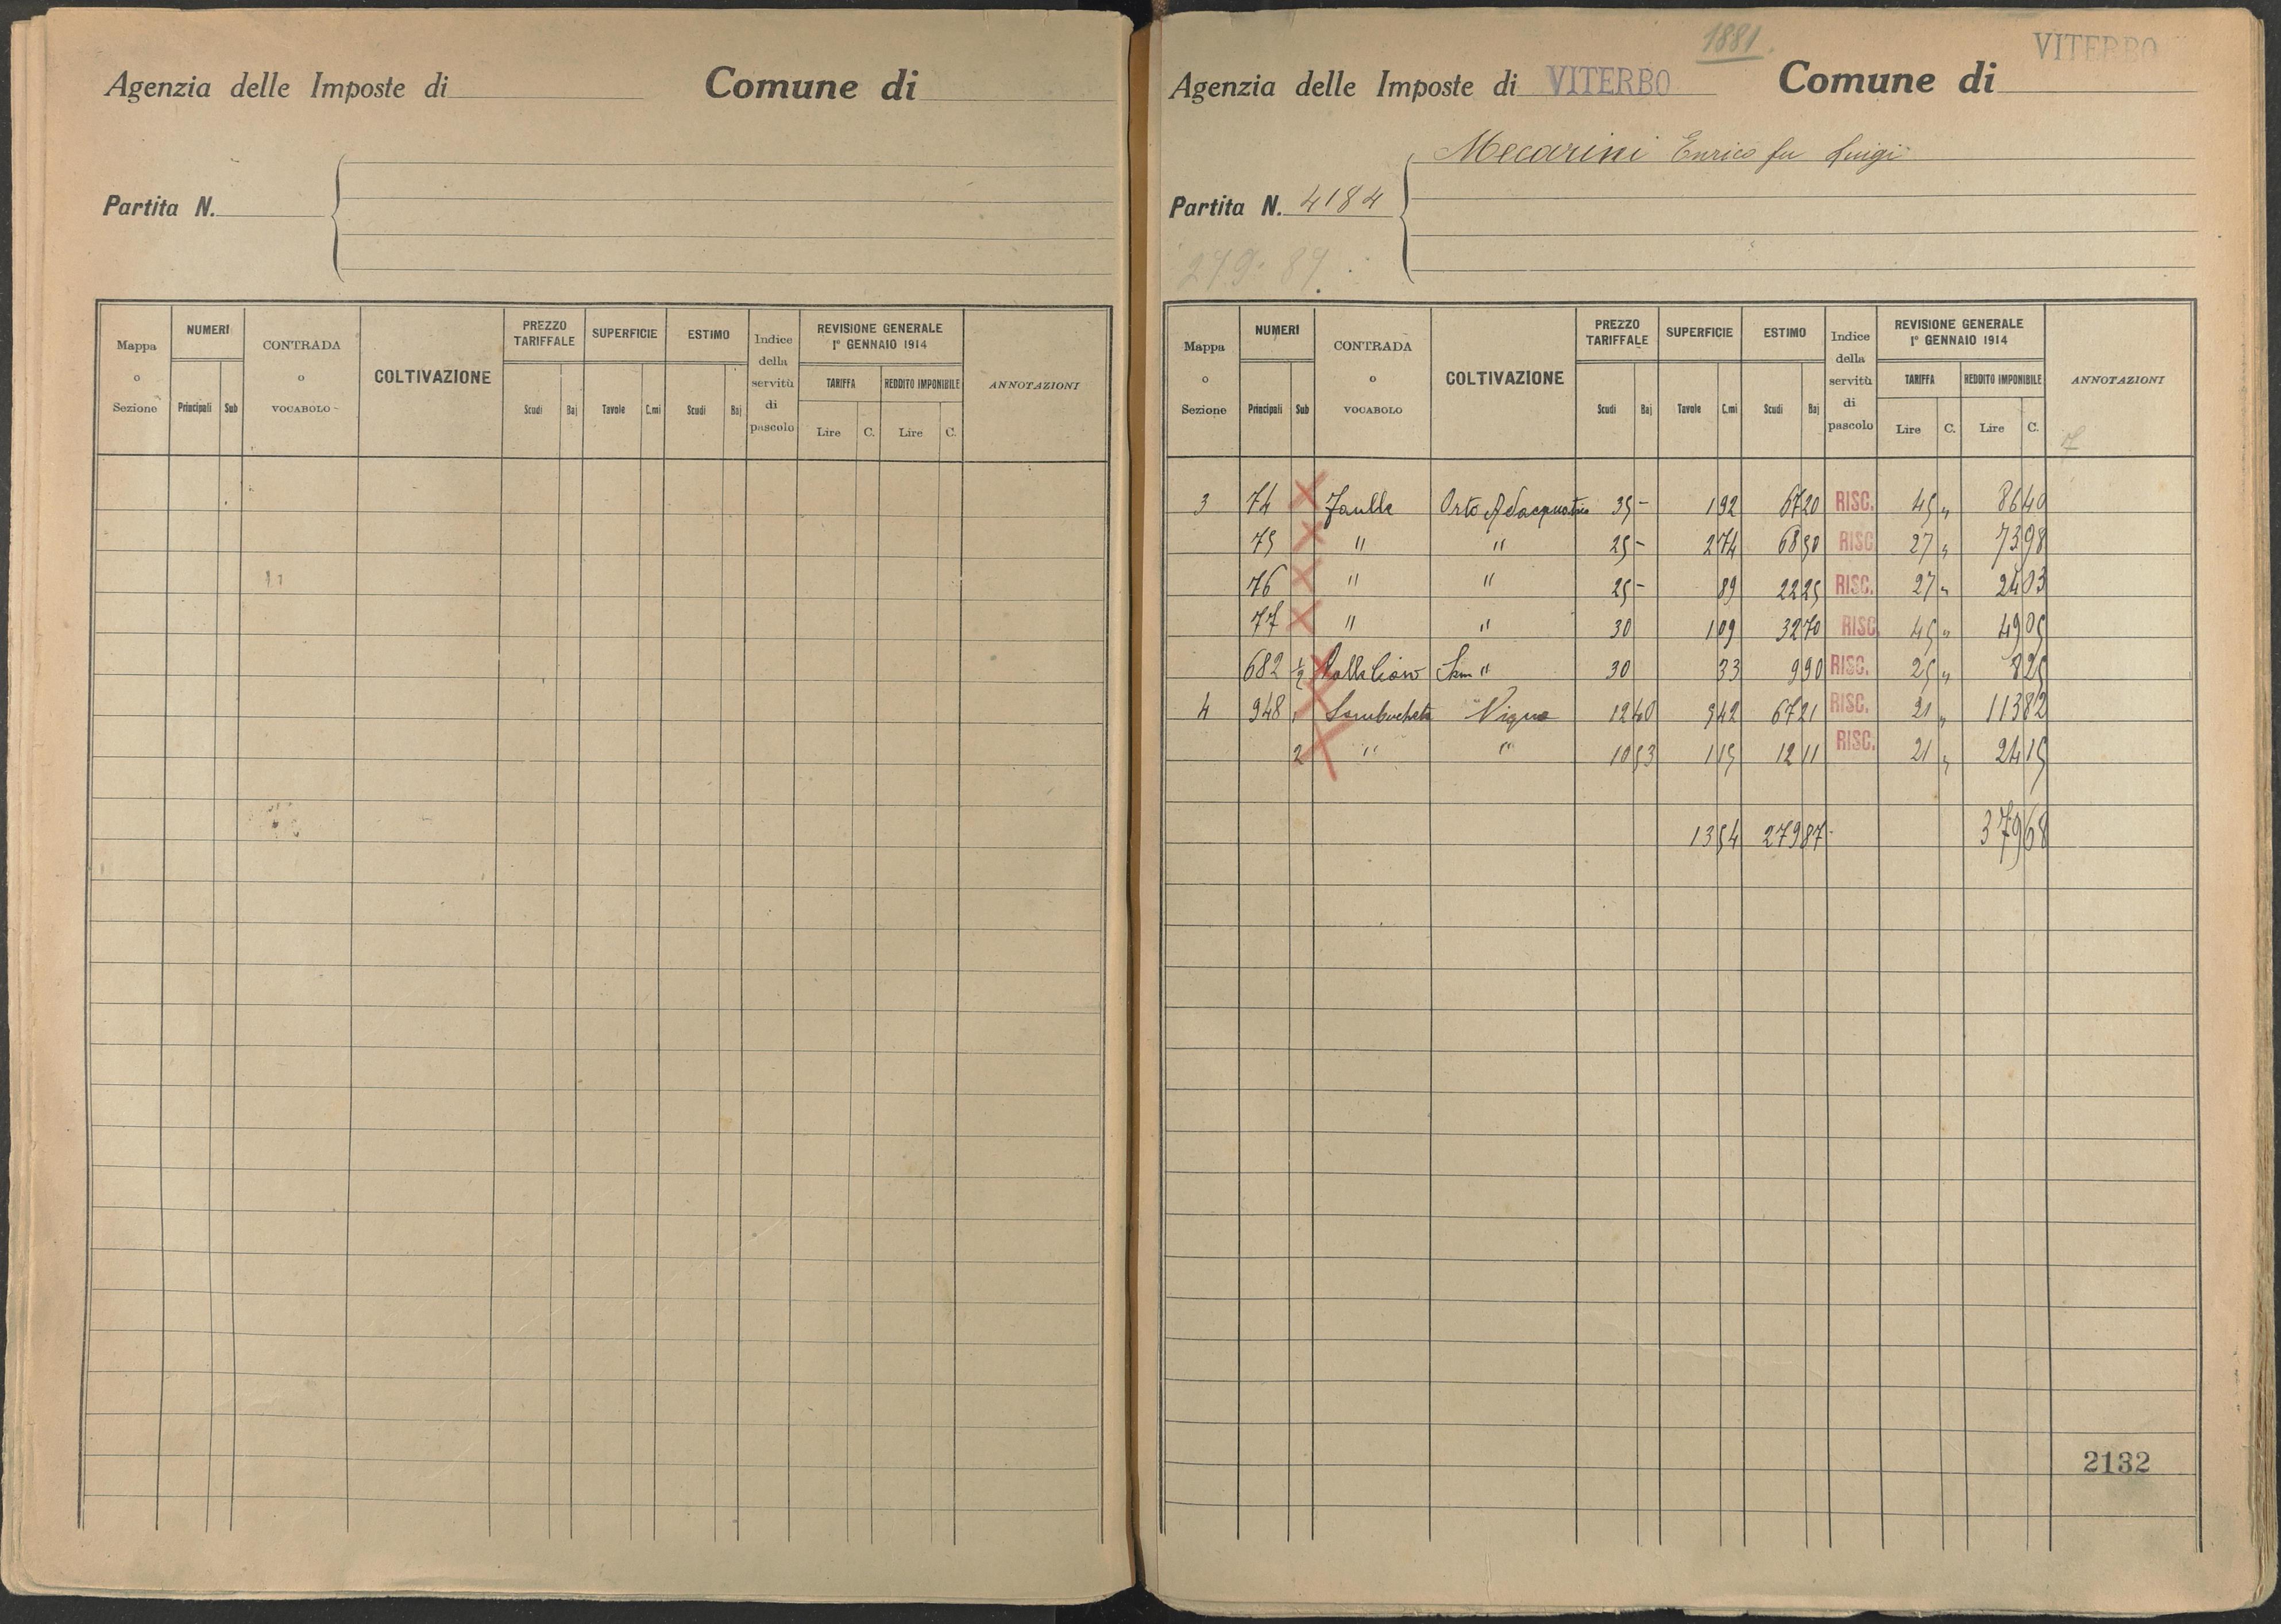 Agenzia delle Imposte di
Comune di
Partita N.
Mappa o Sezione
NUMERI
Principali Sub
CONTRADA o VOCABOLO
COLTIVAZIONE
PREZZO TARIFFALE
Scudi Baj
SUPERFICIE
Tavole C.mi
ESTIMO
Scudi Baj
Indice della servitù di pascolo
REVISIONE GENERALE
1° GENNAIO 1914
TARIFFA
Lire C.
REDDITO IMPONIBILE
Lire C.
ANNOTAZIONI
1881.
VITERBO
Agenzia delle Imposte di VITERBO Comune di
Mecarini Enrico fu Luigi
Partita N. 4184
Mappa o Sezione
NUMERI
Principali Sub
CONTRADA o VOCABOLO
COLTIVAZIONE
PREZZO TARIFFALE
Scudi Baj
SUPERFICIE
Tavole C.mi
ESTIMO
Scudi Baj
Indice della servitù di pascolo
REVISIONE GENERALE
1° GENNAIO 1914
TARIFFA
Lire C.
REDDITO IMPONIBILE
Lire C.
ANNOTAZIONI
3 74 Faulle Orto Adacquativo 35 - 1 92 67 20 RISC. 45 " 86 40
75 " " 25 - 2 74 68 50 RISC 27 " 73 98
76 " " 25 - 89 22 25 RISC. 27 " 24 03
77 " " 30 1 09 32 70 RISC 45 " 49 05
682 ½ " 30 33 9 90 RISC. 25 " 8 25
4 948 1 Vigna 12 40 5 42 67 21 RISC. 21 " 113 82
2 " " 10 53 1 15 12 11 RISC. 21 " 24 15
13 54 279 87 379 68
2132